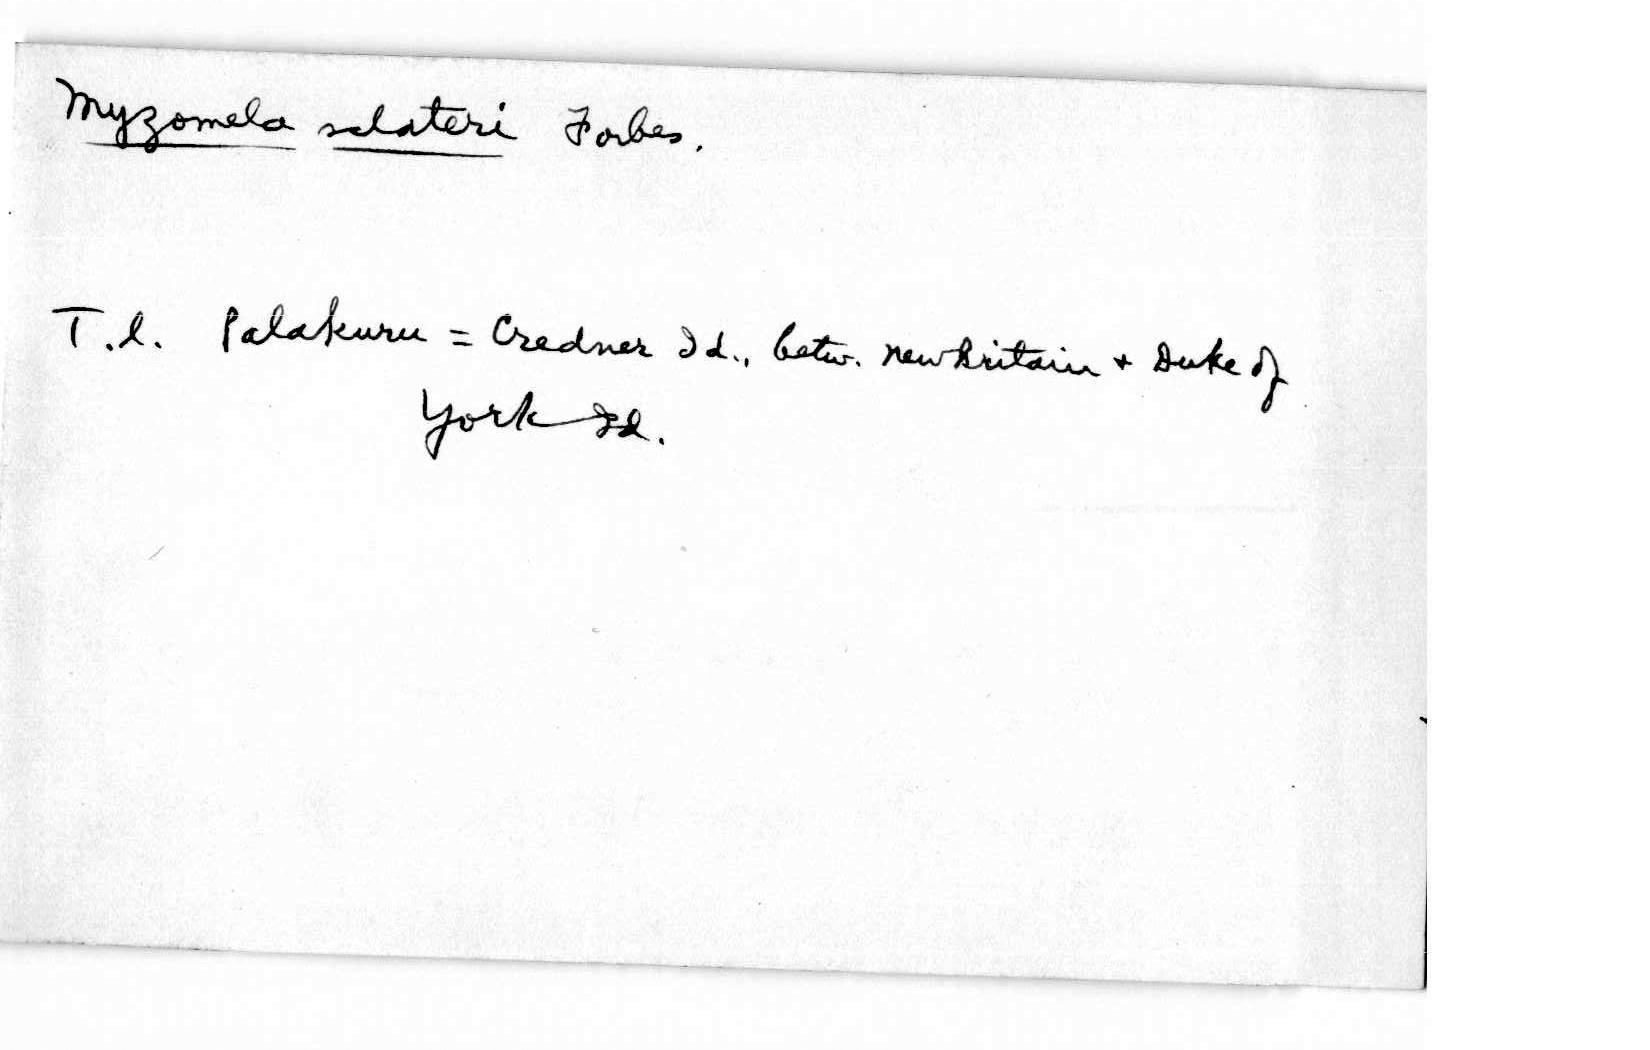 Myzomela sclateri Forbes.
T.l. Palakuru = Credner Id., betw. New Britain + Duke of
York Id.